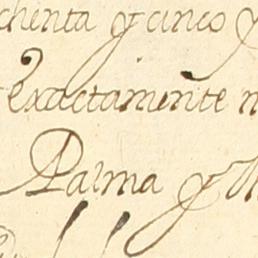 chenta y cinco y
exactamente n
Palma y M